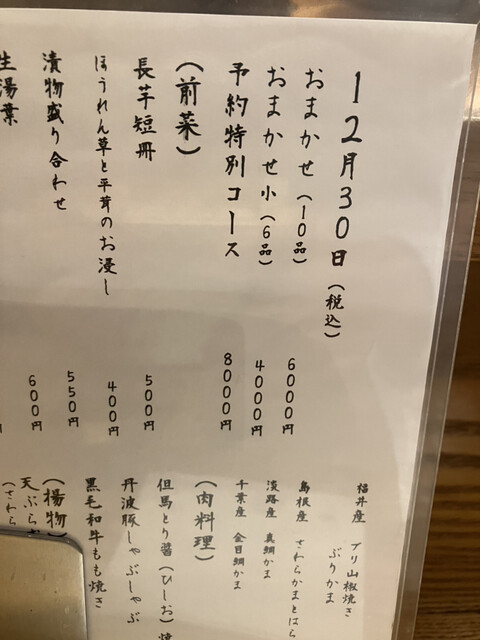 12月30日（税込）
おまかせ（10品） 6000円
おまかせ小（6品） 4000円
予約特別コース 8000円
（前菜）
長芋短冊 500円
ほうれん草と平茸のお浸し 400円
漬物盛り合わせ 550円
生湯葉 600円
福井産 ブリ山椒焼き
ぶりかま
島根産 さわらかまとはら
淡路産 真鯛かま
千葉産 金目鯛かま
（肉料理）
但馬とり醤（ひしお）焼
丹波豚しゃぶしゃぶ
黒毛和牛もも焼き
（揚物）
天ぷら
（さわら